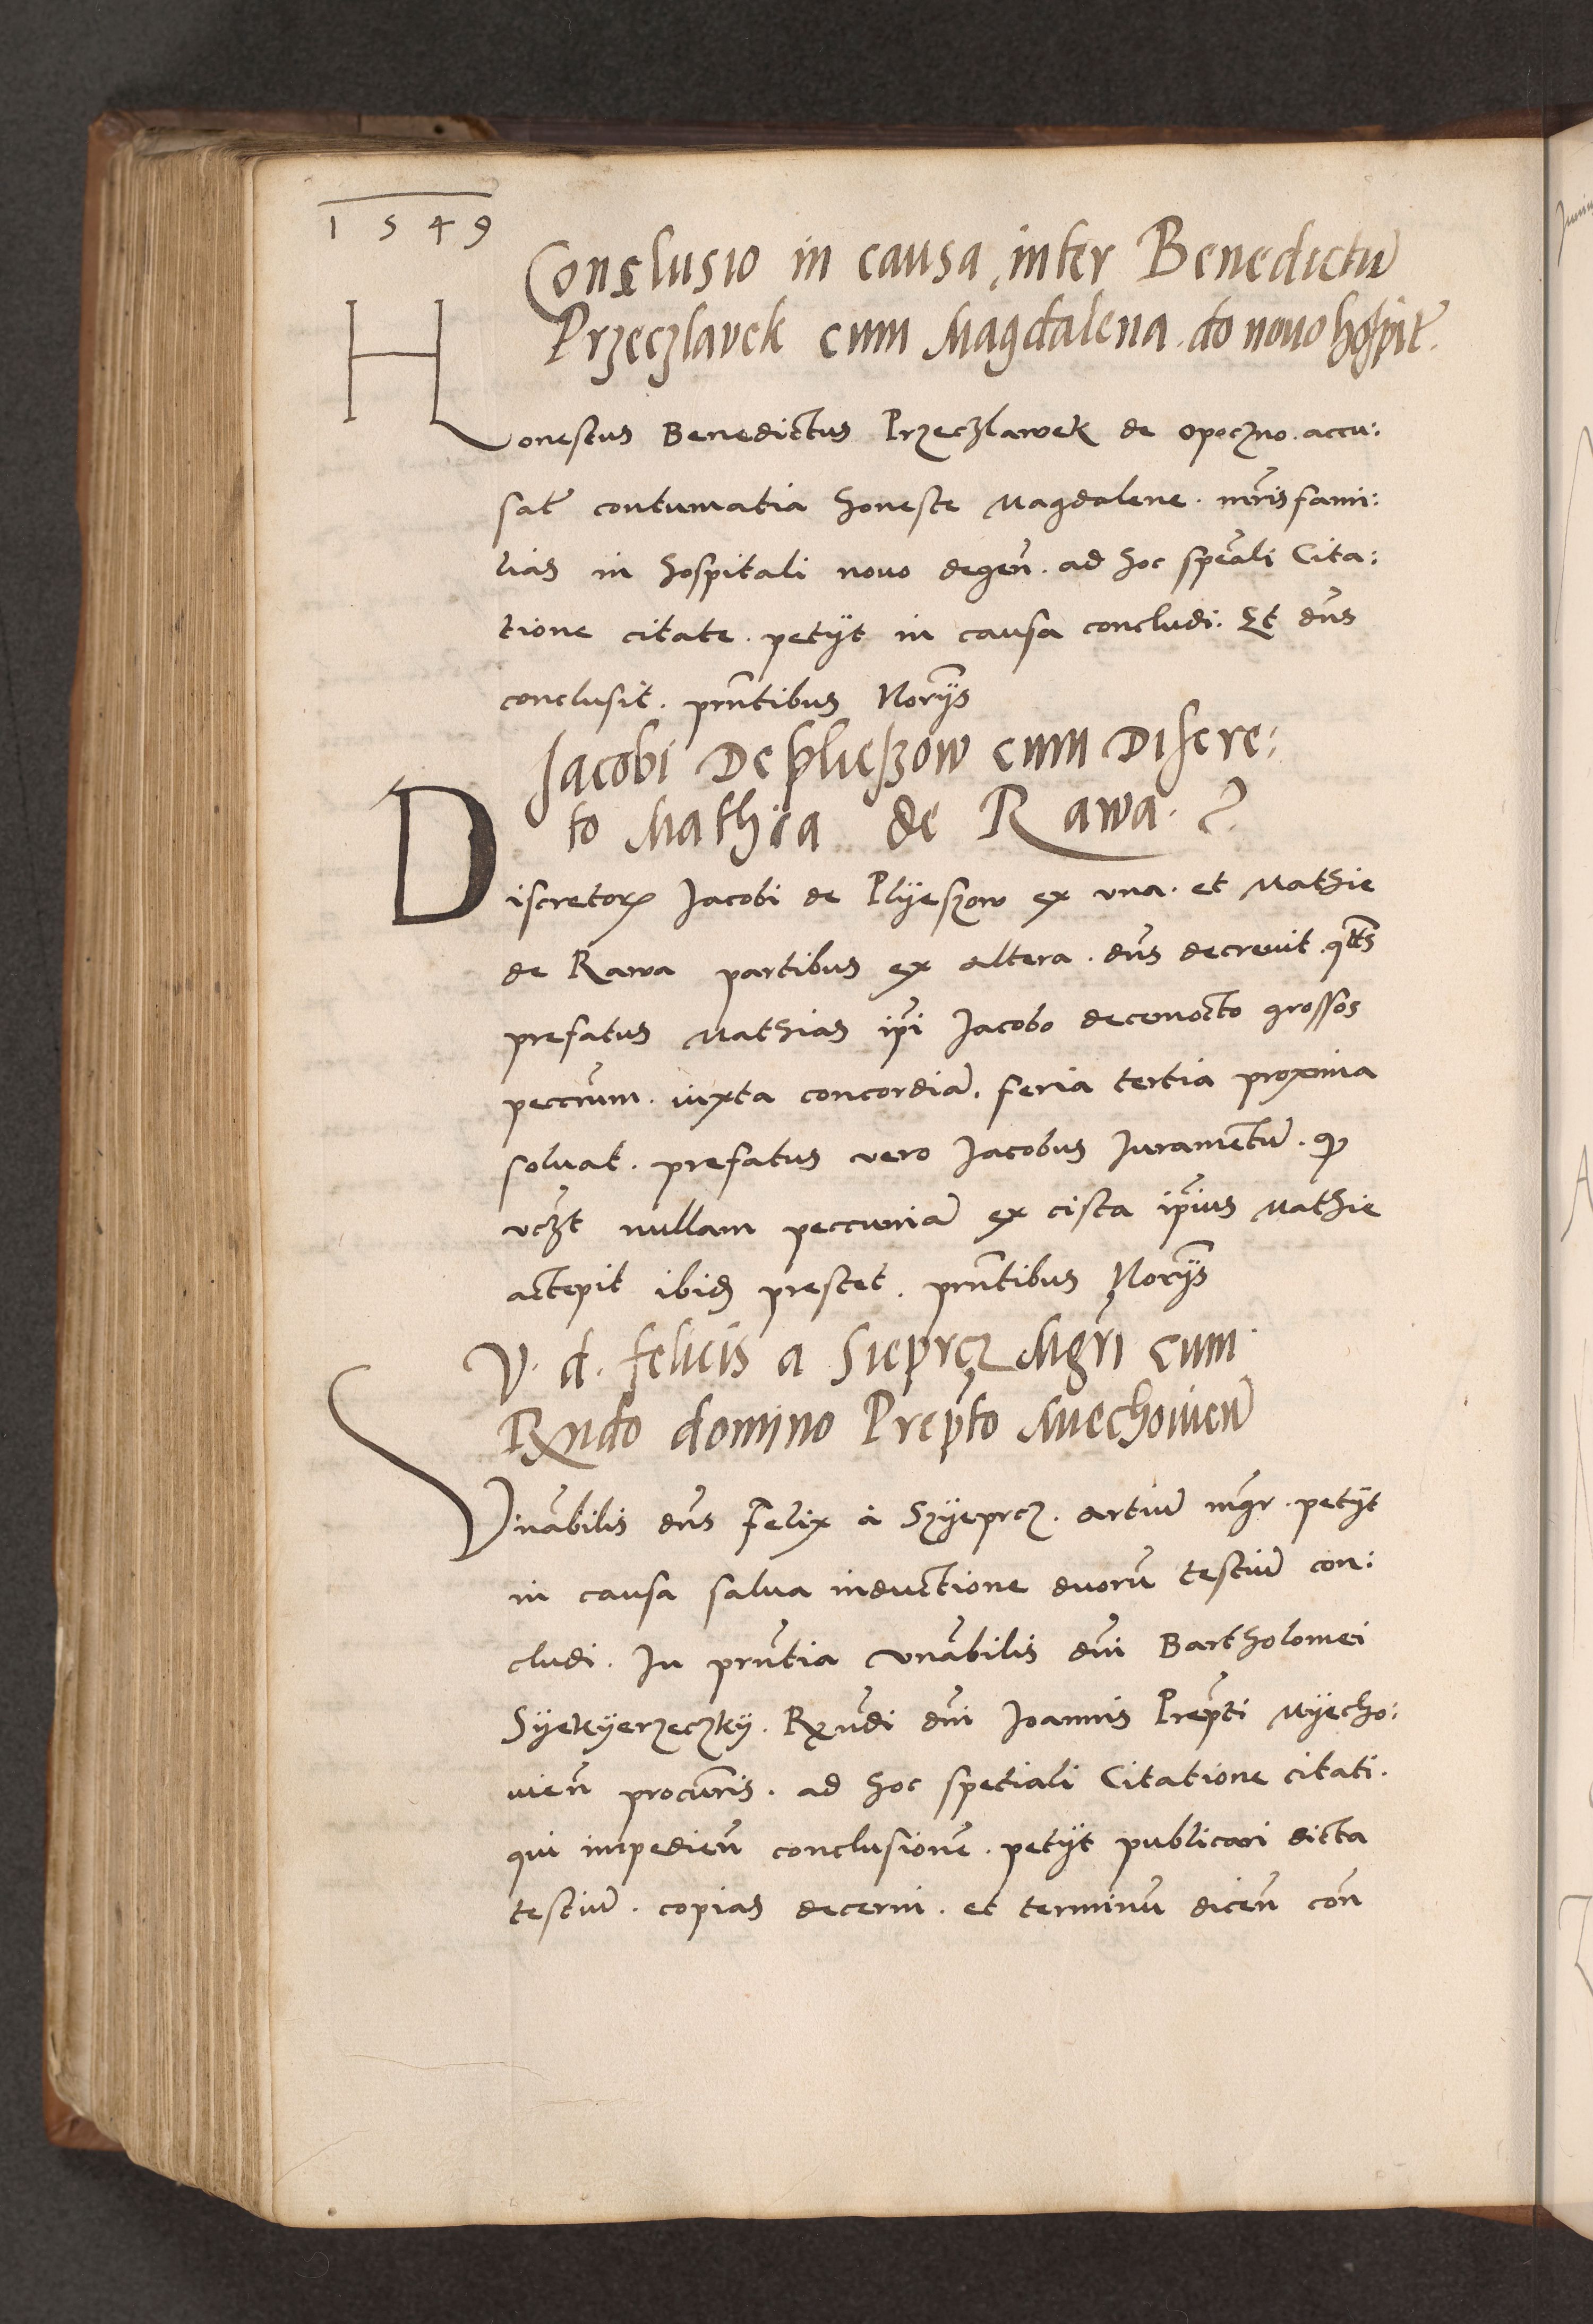 1549
Conclusio in causa inter Benedictũ
Przeczlavek cum Magdalena do novo hospit̃.
Honestus Benedictus Przeczlawek de Opoczno. accu:
sat̃ contumatia honeste Magdalene. mr̃isfami:
lias in hospitali novo degeñ. ad hoc speãli Cita:
tione citate. petijt in causa concludi: Et dñs
conclusit. pñtibus Norijs
Jacobi De plieszow cum Discre:
to Mathia de Rawa.
Discretorꝝ Jacobi de Plijeszow ex vna. et Mathie
de Rawa partibus ex altera. dñs decreuit. qts̃
prefatus Mathias ip̃i Jacobo decemocto grossos
peccr̃um. iuxta concordiã. feria tertia proxima
soluat. prefatus vero Jacobus Juramentũ. ꝙ
vczt̃ nullam peccuniã ex cista ip̃ius Mathie
accepit ibidꝫ prestet. pñtibus Norijs
V. d. felicis a Sieprcz Mgr̃i cum
Rx̃ndo domino Prep̃to Miechouieñ
Vnãbilis dñs Felix à Szyeprcz. artiũ mg̃r. petijt
in causa salua inductione duorũ testiũ con:
cludi. In pñtia vnãbilis dñi Bartholomei
Syekyerzeczky. Rx̃ndi dñi Joannis Prep̃ti Myecho:
uieñ procur̃is. ad hoc spetiali Citatione citati.
qui impedieñ conclusionẽ. petijt publicari dicta
testiũ. copias decerni. et terminũ diceñ coñ